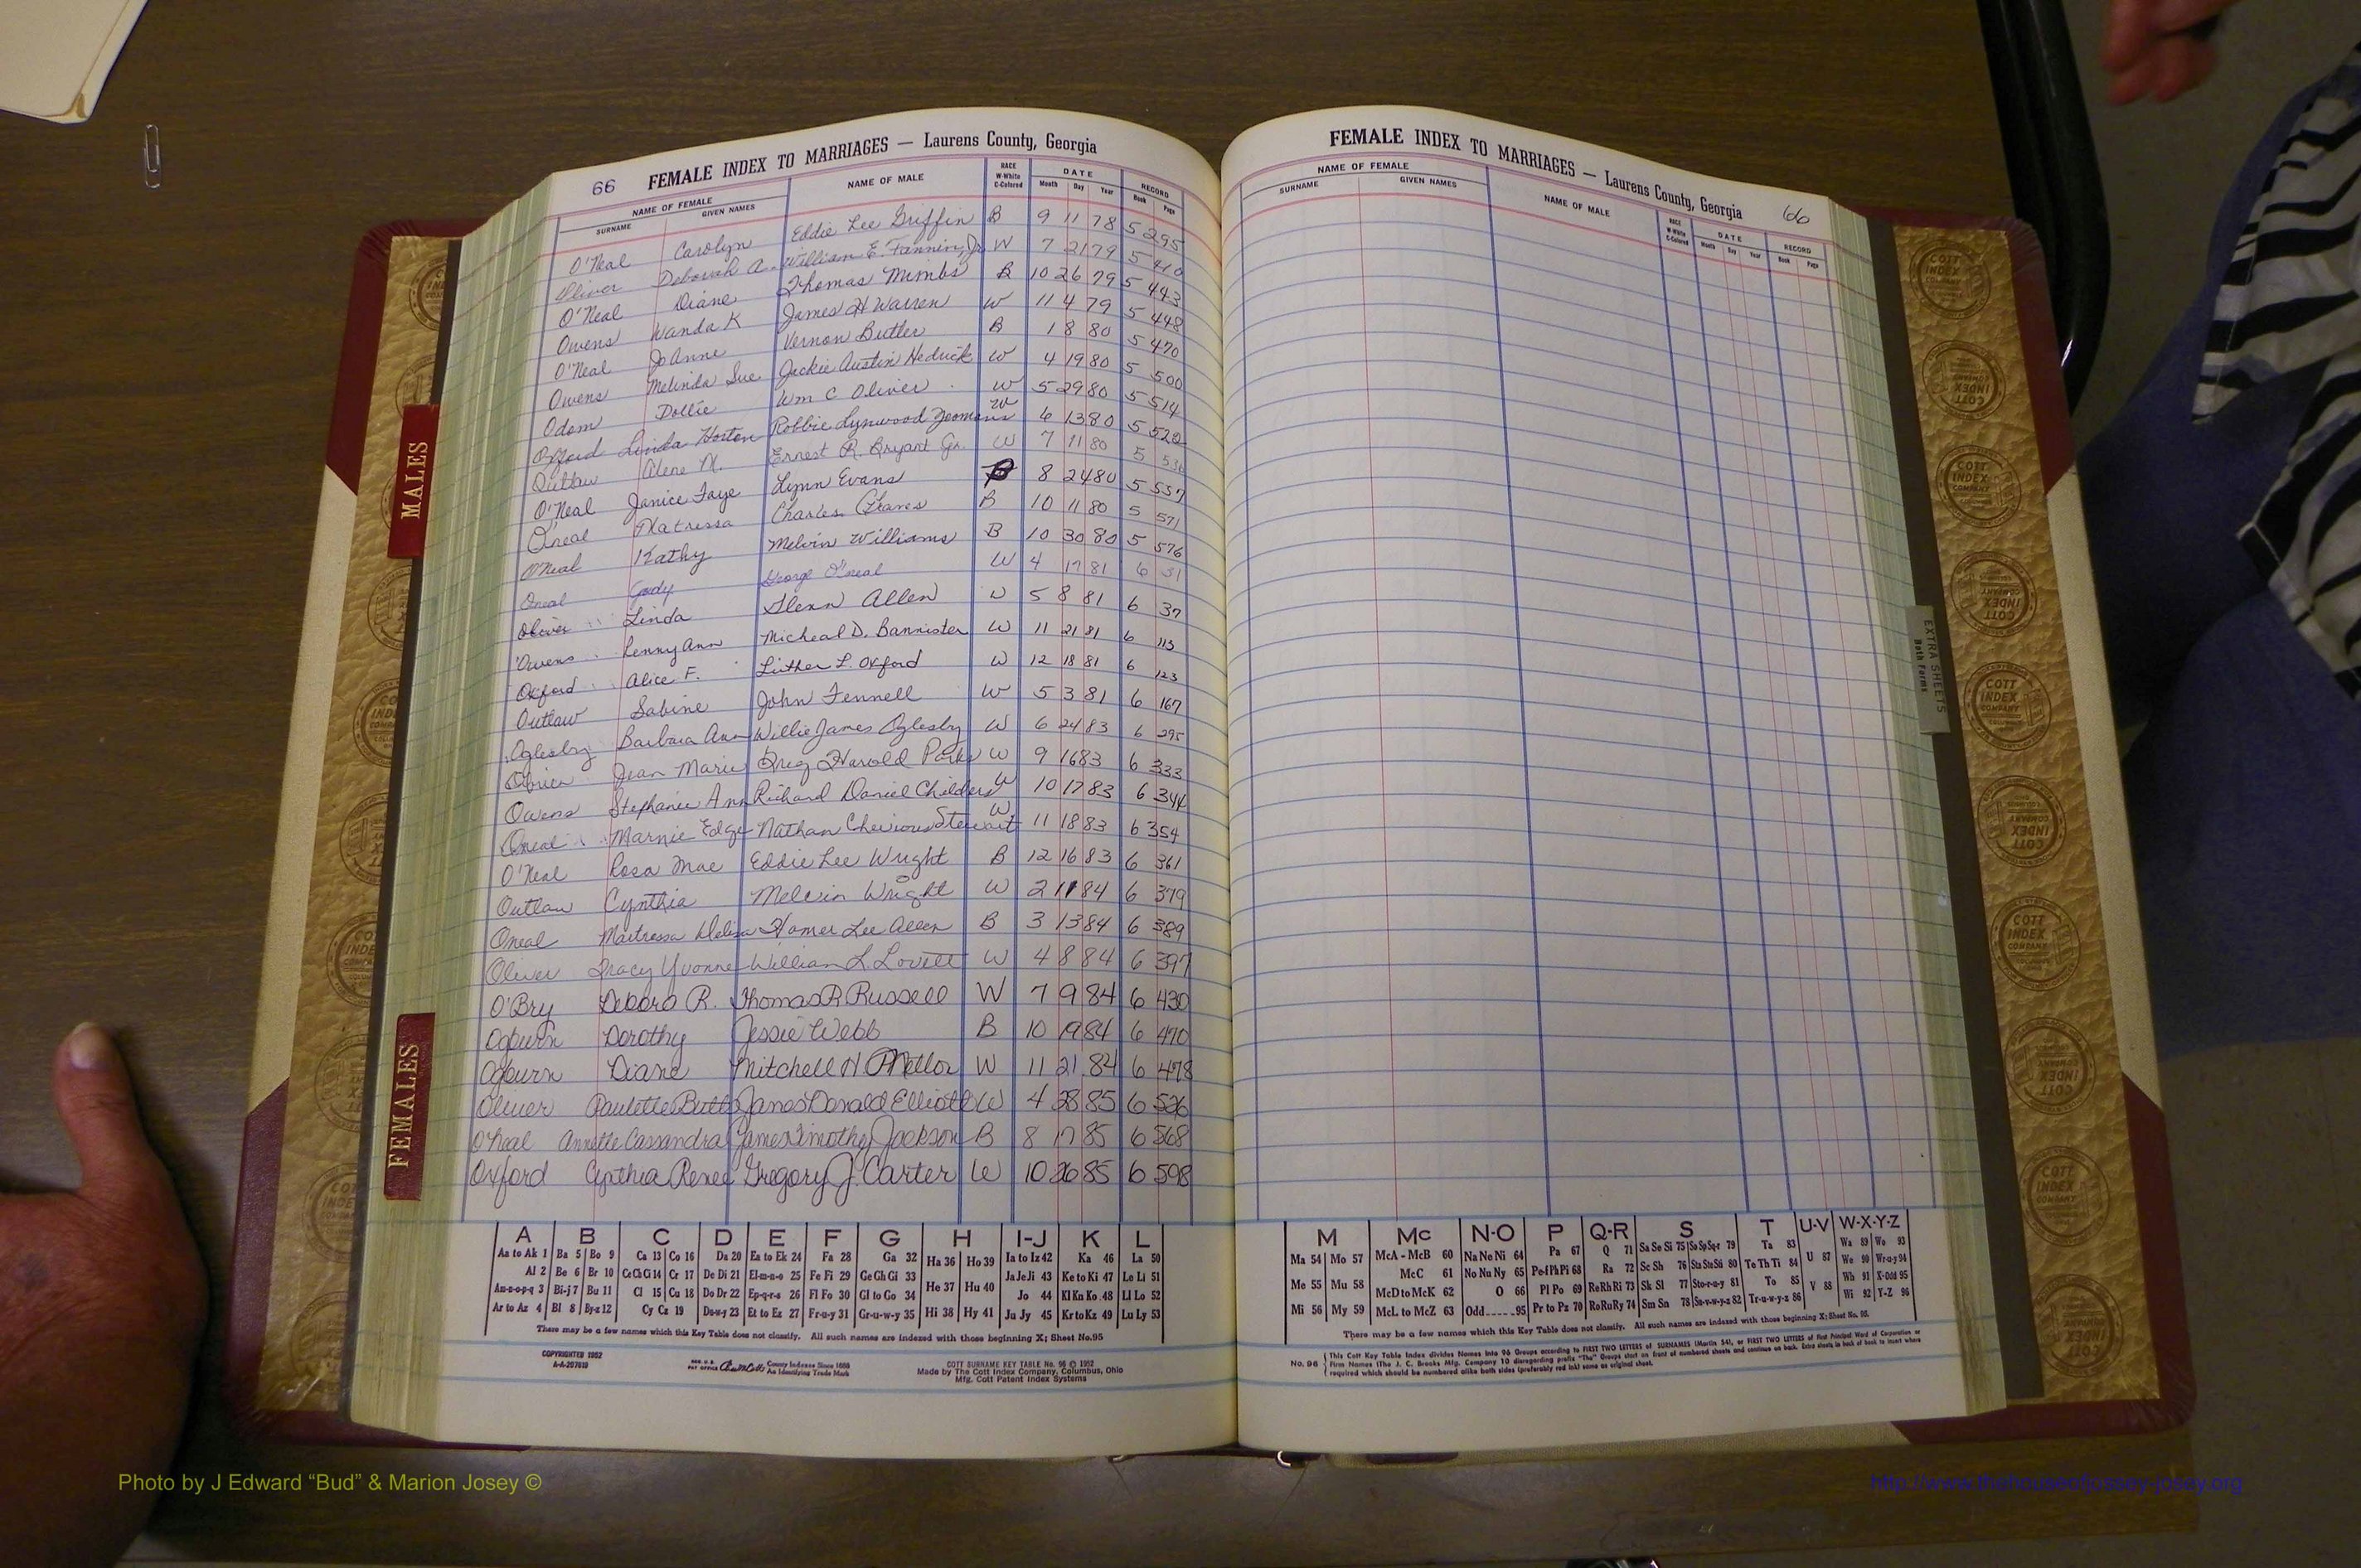 66 FEMALE INDEX TO MARRIAGES — Laurens County, Georgia
NAME OF FEMALE NAME OF MALE RACE W-White C-Colored DATE RECORD
SURNAME GIVEN NAMES Month Day Year Book Page
O'Neal Carolyn Eddie Lee Griffin B 9 11 78 5 295
Oliver Deborah A. William E. Fannin, Jr W 7 21 79 5 410
O'Neal Diane Thomas Mimbs B 10 26 79 5 443
Owens Wanda K James H Warren W 11 4 79 5 448
O'Neal JoAnne Vernon Butler B 1 8 80 5 470
Owens Melinda Sue Jackie Austin Hedrick W 4 19 80 5 500
Odom Dollie Wm C Oliver W 5 29 80 5 514
Offord Linda Horton Robbie Lynwood Yeomans W 6 13 80 5 520
Outlaw Alene N. Ernest R. Bryant W 7 11 80 5
O'Neal Janice Faye Lynn Evans B 8 24 80 5 557
O'neal Charles B 10 11 80 5 571
O'Neal Kathy Melvin Williams B 10 30 80 5 576
Oneal George O'neal W 4 17 81 6
Oliver Linda Glenn Allen W 5 8 81 6 37
Owens Micheal D. Bannister W 11 21 81 6 113
Oxford Alice F. Luther L. Oxford W 12 18 81 6 123
Outlaw Sabine John Fennell W 5 3 81 6 167
Oglesby Barbara Ann Willie James Oglesby W 6 24 83 6 295
Obrien Jean Marie Greg Harold Parks W 9 16 83 6 333
Owens Stephanie Ann Richard Daniel Childers W 10 17 83 6 344
Oneal Marnie Edge Nathan Stewart W 11 18 83 6 354
O'Neal Rosa Mae Eddie Lee Wright B 12 16 83 6 361
Outlaw Cynthia Melvin Wright W 2 11 84 6 379
Oneal Maitressa Homer Lee Allen B 3 13 84 6 389
Oliver Tracy Yvonne William L. Lovett W 4 8 84 6 397
O'Bry Debora R. Thomas R Russell W 7 9 84 6 430
Ogburn Dorothy Jessie Webb B 10 19 84 6 470
Ogburn Diane Mitchell H. W 11 21 84 6 478
Oliver Paulette Butts James Donald Elliott W 4 28 85 6 526
O'Neal Annette Cassandra James Timothy Jackson B 8 17 85 6 568
Oxford Cynthia Renee Gregory J. Carter W 10 26 85 6 598
MALES
FEMALES
A B C D E F G H I-J K L
Aa to Ak 1 Ba 5 Bo 9 Ca 13 Co 16 Da 20 Ea to Ek 24 Fa 28 Ga 32 Ha 36 Ho 39 Ia to Iz 42 Ka 46 La 50
Al 2 Be 6 Br 10 Ce Ch Ci 14 Cr 17 De Di 21 El-m-n-o 25 Fe Fi 29 Ge Gh Gi 33 He 37 Hu 40 Ja Je Ji 43 Ke to Ki 47 Le Li 51
Am-n-o-p-q 3 Bi-j 7 Bu 11 Cl 15 Cu 18 Do Dr 22 Ep-q-r-s 26 Fl Fo 30 Gl to Go 34 Jo 44 Kl Kn Ko 48 Ll Lo 52
Ar to Az 4 Bl 8 By-z 12 Cy Cz 19 Du-w-y 23 Et to Ez 27 Fr-u-y 31 Gr-u-w-y 35 Hi 38 Hy 41 Ju Jy 45 Kr to Kz 49 Lu Ly 53
There may be a few names which this Key Table does not classify. All such names are indexed with those beginning X; Sheet No.95
COPYRIGHTED 1952
County Indexes Since 1888
An Identifying Trade Mark
COTT SURNAME KEY TABLE No. 96 © 1952
Made by The Cott Index Company, Columbus, Ohio
Mfg. Cott Patent Index Systems
FEMALE INDEX TO MARRIAGES — Laurens County, Georgia 66
NAME OF FEMALE NAME OF MALE RACE W-White C-Colored DATE RECORD
SURNAME GIVEN NAMES Month Day Year Book Page
EXTRA SHEETS
Both Forms
COTT INDEX COMPANY
M Mc N-O P Q-R S T U-V W-X-Y-Z
Ma 54 Mo 57 McA - McB 60 Na Ne Ni 64 Pa 67 Q 71 Sa Se Si 75 So Sp Sq-r 79 Ta 83 U 87 Wa 89 Wo 93
Me 55 Mu 58 McC 61 No Nu Ny 65 Pe-f Ph Pi 68 Ra 72 Sc Sh 76 Sta Ste Sti 80 Te Th Ti 84 We 90 Wr-u-y 94
McD to McK 62 O 66 Pl Po 69 Re Rh Ri 73 Sk Sl 77 Sto-r-u-y 81 To 85 V 88 Wh 91 X-Odd 95
Mi 56 My 59 McL to McZ 63 Odd 95 Pr to Pz 70 Ro Ru Ry 74 Sm Sn 78 Su-v-w-y-z 82 Tr-u-w-y-z 86 Wi 92 Y-Z 96
There may be a few names which this Key Table does not classify. All such names are indexed with those beginning X; Sheet No. 95.
No. 96 This Cott Key Table Index divides Names into 96 Groups according to FIRST TWO LETTERS of SURNAMES (Martin 54), or FIRST TWO LETTERS of First Principal Word of Corporation or
Firm Names (The J. C. Brooks Mfg. Company 10 disregarding prefix "The") Groups start on front of numbered sheets and continue on back. Extra sheets in back of book to insert where
required which should be numbered alike both sides (preferably red ink) same as original sheet.
Photo by J Edward “Bud” & Marion Josey ©
http://www.thehouseofjossey-josey.org